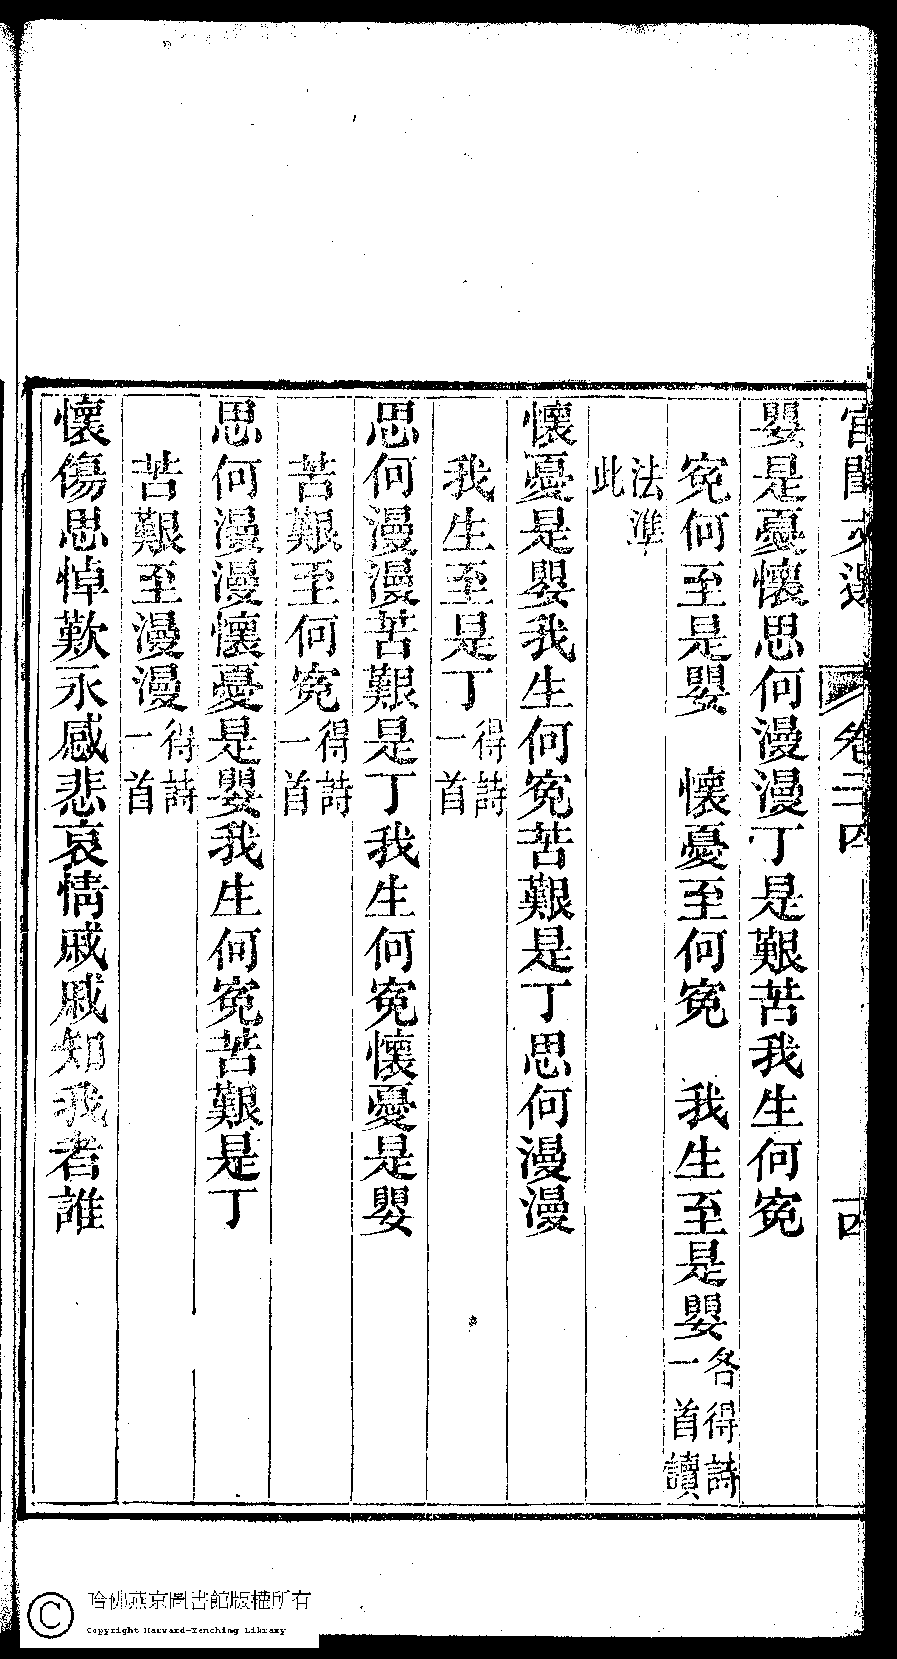 宮閨文選 卷二十四 四
嬰是憂懷思何漫漫丁是艱苦我生何寃
寃何至是嬰　懷憂至何寃　我生至是嬰各得詩一首讀
法準此
懷憂是嬰我生何寃苦艱是丁思何漫漫
我生至是丁得詩一首
思何漫漫苦艱是丁我生何寃懷憂是嬰
苦艱至何寃得詩一首
思何漫漫懷憂是嬰我生何寃苦艱是丁
苦艱至漫漫得詩一首
懷傷思悼歎永感悲哀情戚戚知我者誰
哈佛燕京圖書館版權所有
Copyright Harvard-Yenching Library